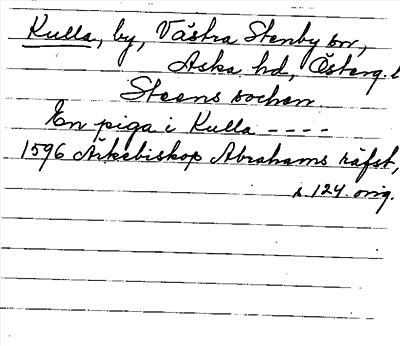 Kulla, by, Västra Stenby sn,
Aska hd, Österg. l
Steens sochen
En piga i Kulla ----
1596 Ärkebiskop Abrahams räfst,
s. 124. orig.